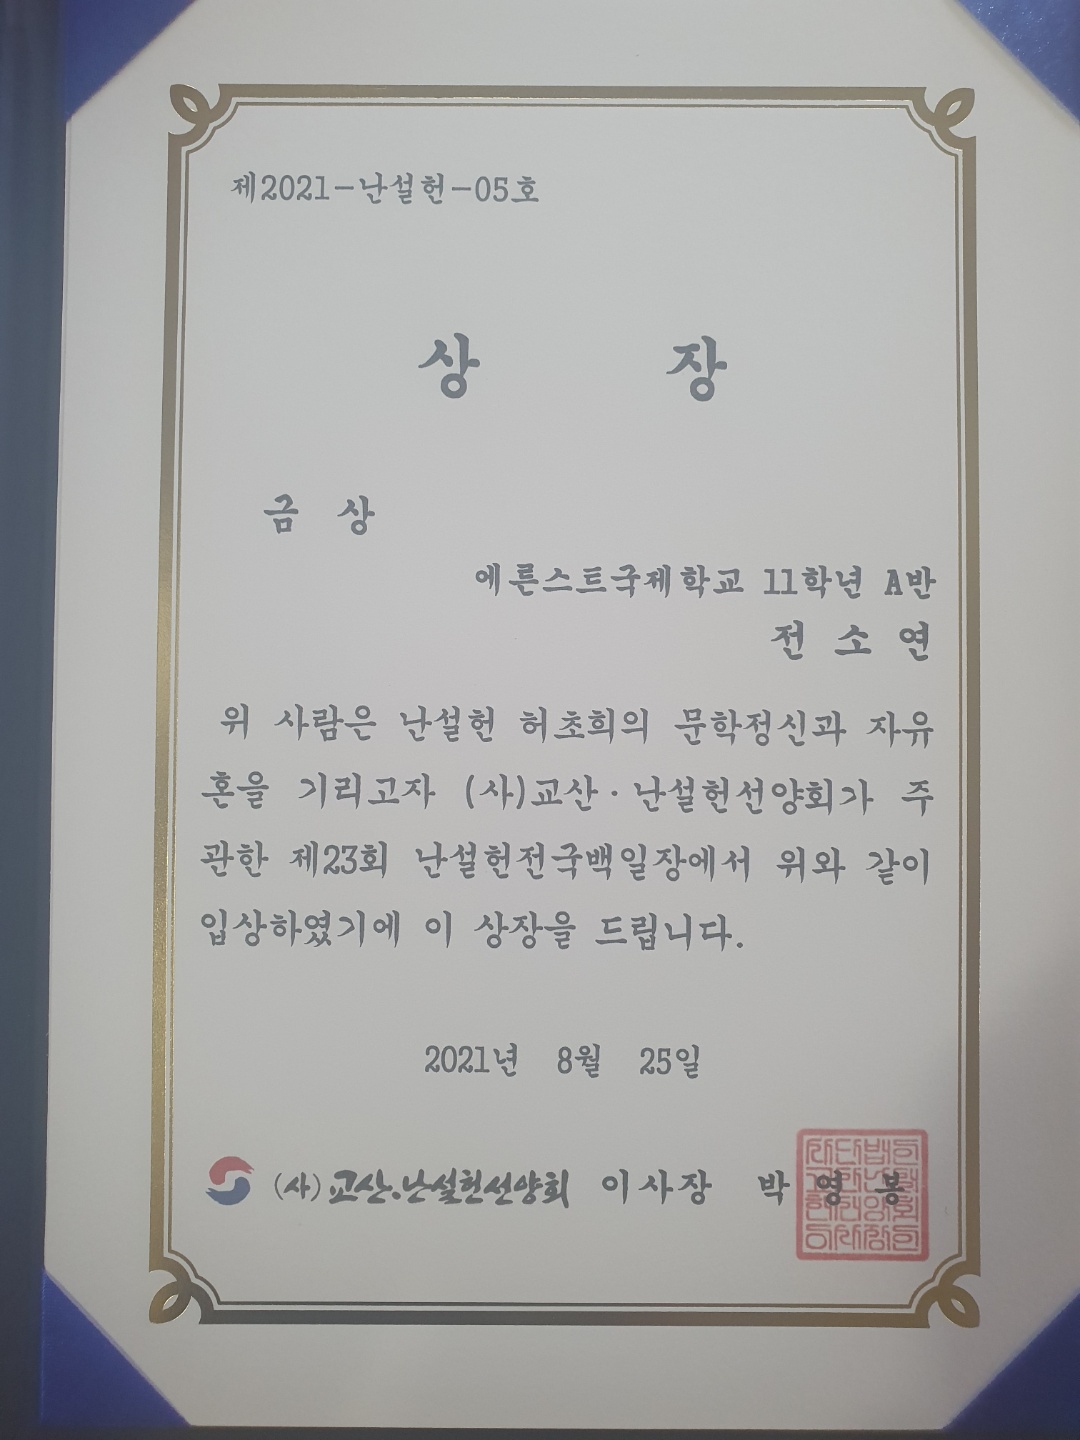 제2021-난설헌-05호
상 장
금 상
에른스트국제학교 11학년 A반
전 소 연
위 사람은 난설헌 허초희의 문학정신과 자유
혼을 기리고자 (사)교산·난설헌선양회가 주
관한 제23회 난설헌전국백일장에서 위와 같이
입상하였기에 이 상장을 드립니다.
2021년 8월 25일
(사)교산.난설헌선양회 이사장 박 영 봉